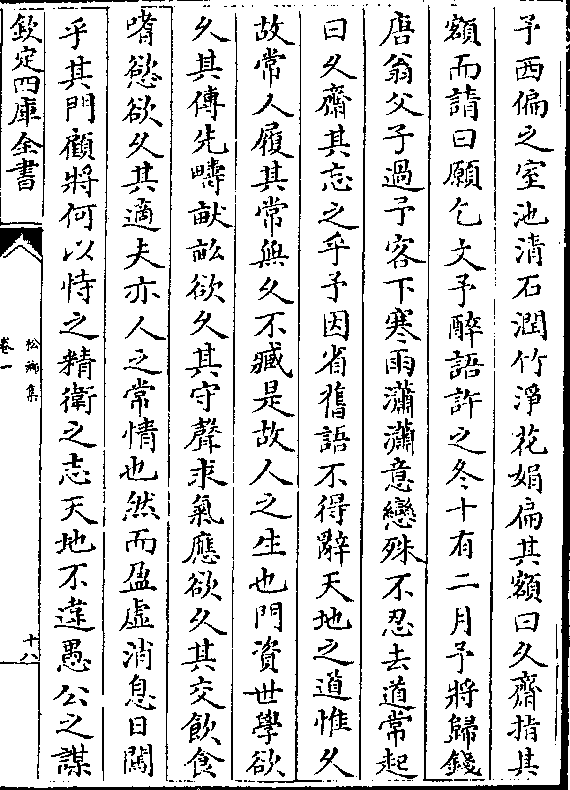 予西偏之室池清石潤竹淨花娟扁其額曰久齋指其
額而請曰願乞文予醉語許之冬十有二月予將歸錢
唐翁父子過予客下寒雨瀟瀟意戀殊不忍去道常起
曰久齋其忘之乎予因省舊語不得辭天地之道惟久
故常人履其常無久不臧是故人之生也門資世學欲
久其傳先疇畎畝欲久其守聲求氣應欲久其交飲食
嗜慾欲久其適夫亦人之常情也然而盈虛消息日闖
乎其門顧將何以恃之精衛之志天地不違愚公之謀
欽定四庫全書
松鄉集
卷一
十八